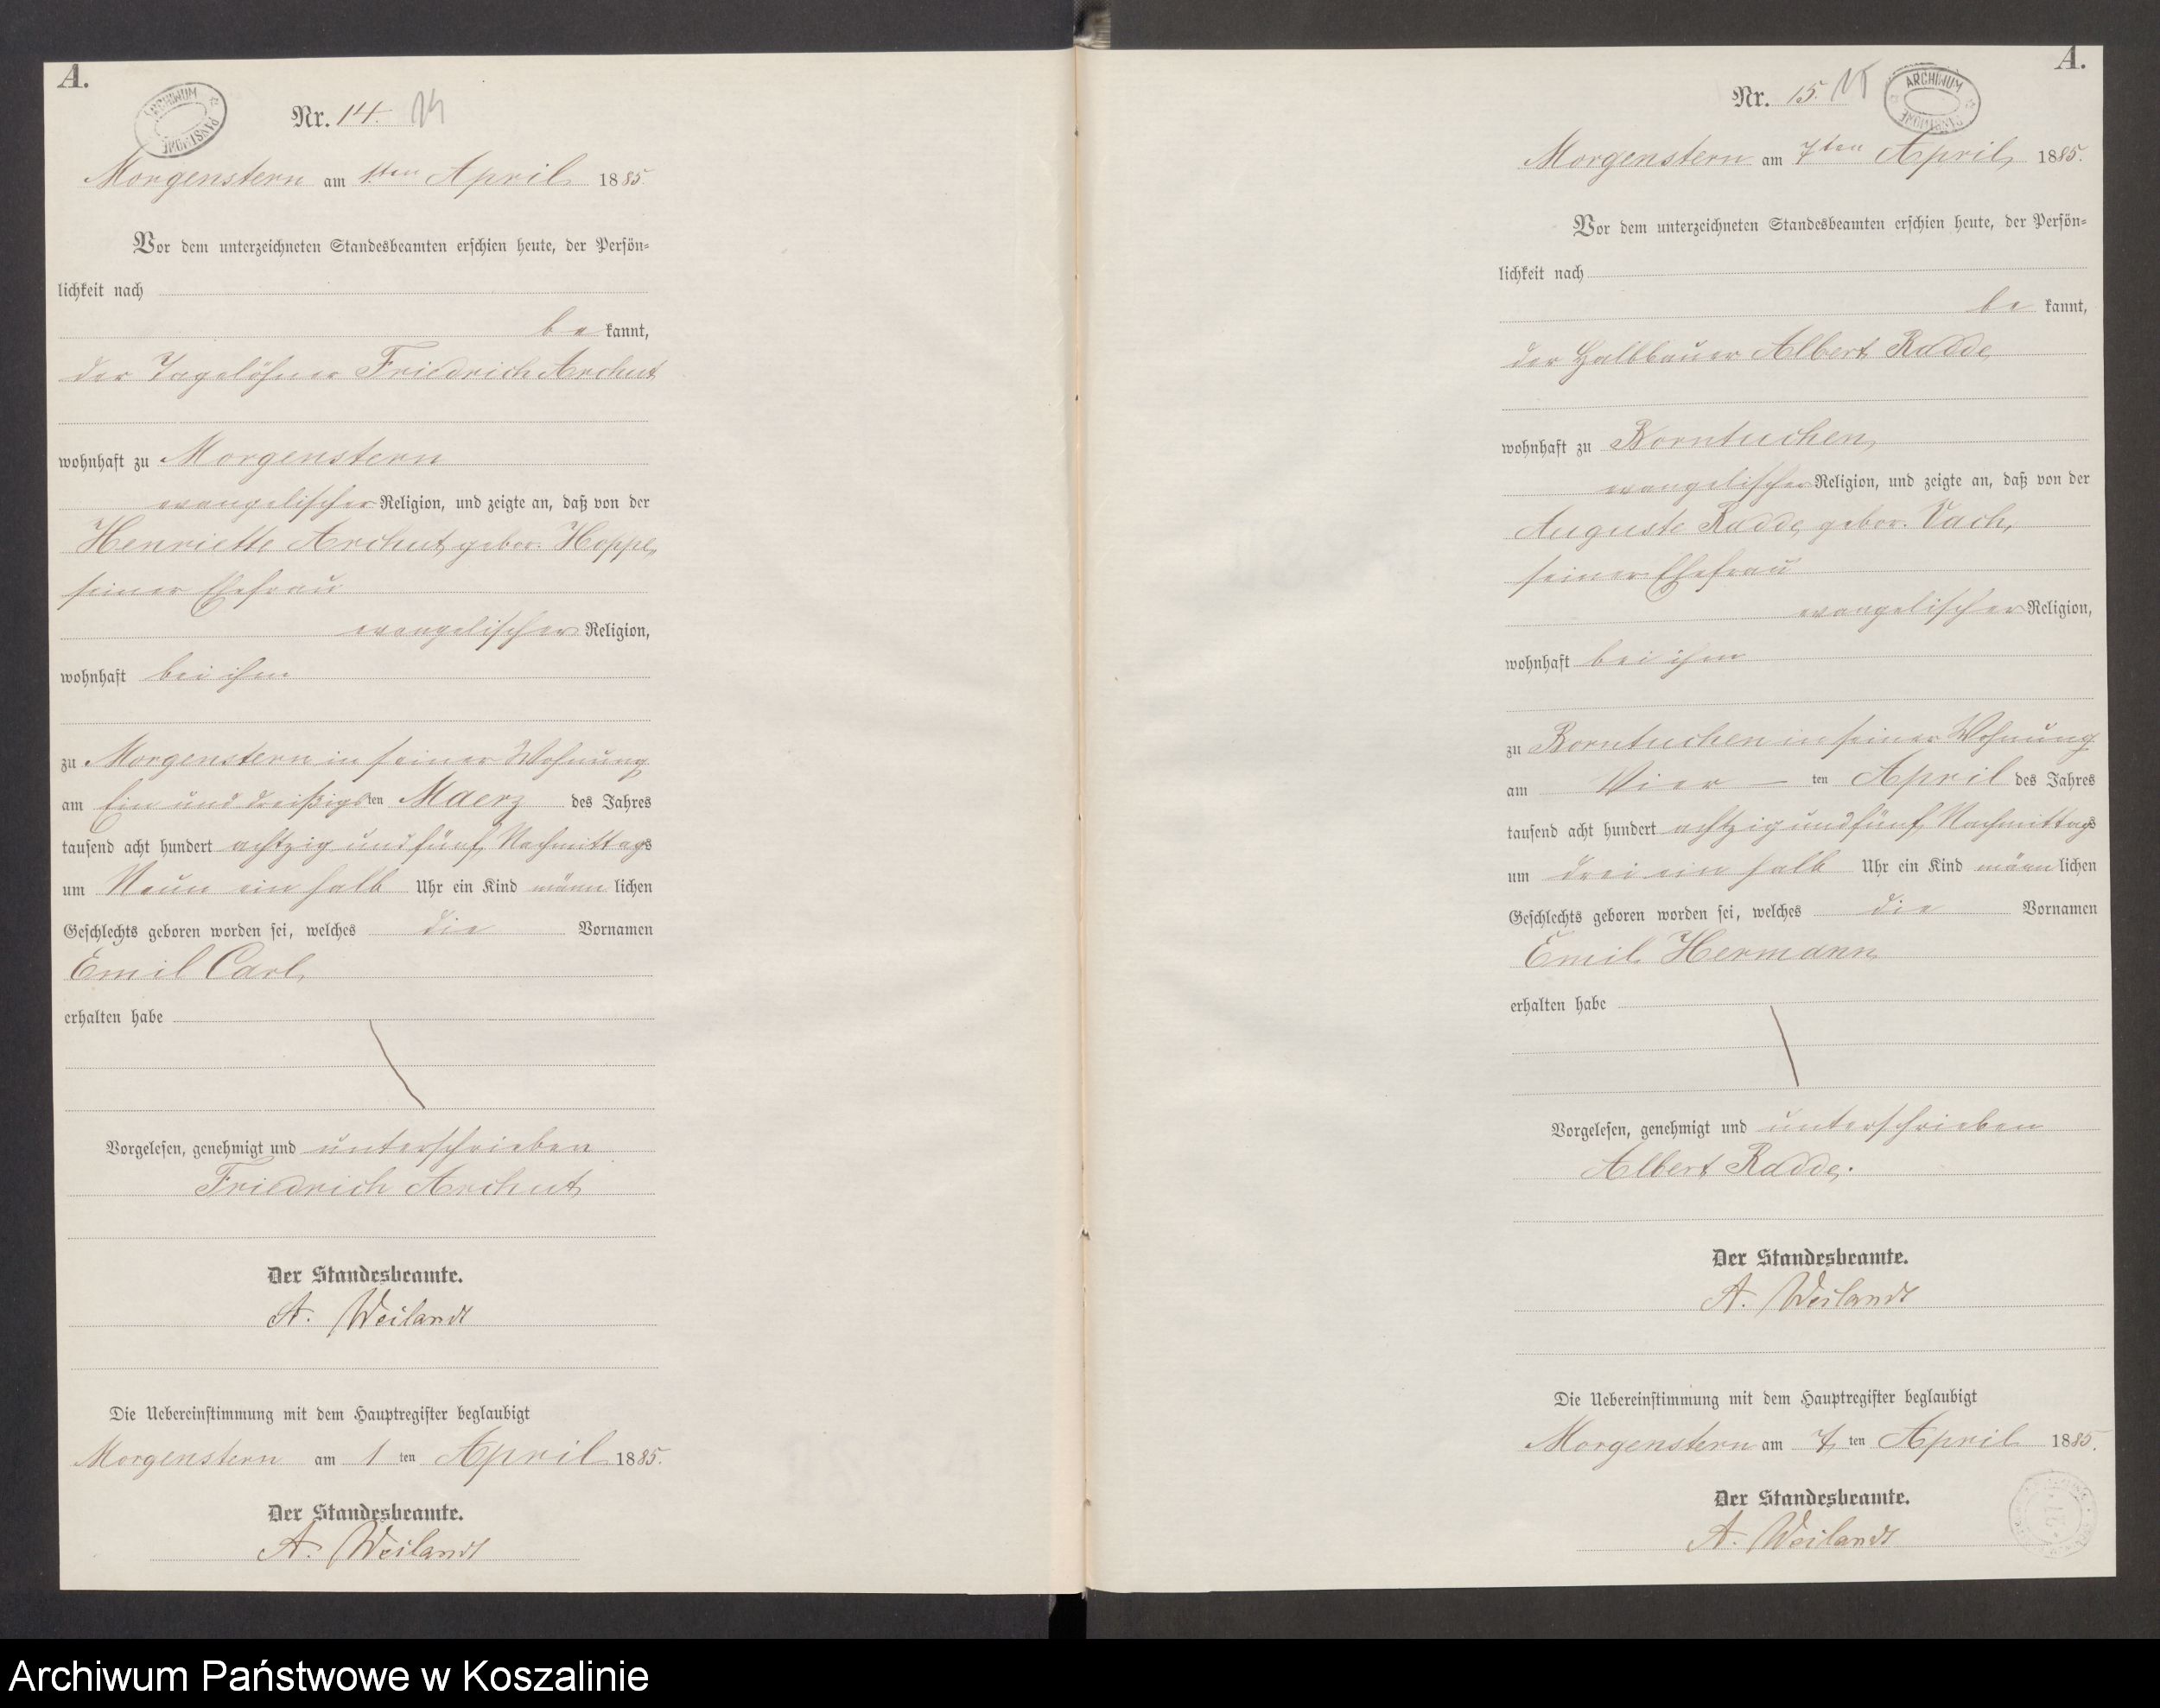 A.
ARCHIWUM PAŃSTWOWE
Nr. 14. 14
Morgenstern am 1ten April 1885.
Vor dem unterzeichneten Standesbeamten erschien heute, der Persön-
lichkeit nach
be kannt,
der Tagelöhner Friedrich Archut
wohnhaft zu Morgenstern
evangelischer Religion, und zeigte an, daß von der
Henriette Archut, gebor. Hoppe,
seiner Ehefrau
evangelischer Religion,
wohnhaft bei ihm
zu Morgenstern in seiner Wohnung
am Ein und dreißigsten Maerz des Jahres
tausend acht hundert achtzig und fünf, Nachmittags
um Neun ein halb Uhr ein Kind männ lichen
Geschlechts geboren worden sei, welches die Vornamen
Emil Carl,
erhalten habe
Vorgelesen, genehmigt und unterschrieben
Friedrich Archut
Der Standesbeamte.
A. Weilandt
Die Uebereinstimmung mit dem Hauptregister beglaubigt
Morgenstern am 1 ten April 1885.
Der Standesbeamte.
A. Weilandt
A.
Nr. 15. 15
ARCHIWUM PAŃSTWOWE
Morgenstern am 7ten April, 1885.
Vor dem unterzeichneten Standesbeamten erschien heute, der Persön-
lichkeit nach
be kannt,
der Halbbauer Albert Radde,
wohnhaft zu Borntuchen,
evangelischer Religion, und zeigte an, daß von der
Auguste Radde, gebor. Vach,
seiner Ehefrau
evangelischer Religion,
wohnhaft bei ihm
zu Borntuchen in seiner Wohnung
am Vier ten April des Jahres
tausend acht hundert achtzig und fünf, Nachmittags
um drei ein halb Uhr ein Kind männ lichen
Geschlechts geboren worden sei, welches die Vornamen
Emil Hermann
erhalten habe
Vorgelesen, genehmigt und unterschrieben
Albert Radde.
Der Standesbeamte.
A. Weilandt
Die Uebereinstimmung mit dem Hauptregister beglaubigt
Morgenstern am 7 ten April 1885.
Der Standesbeamte.
A. Weilandt
Archiwum Państwowe w Koszalinie